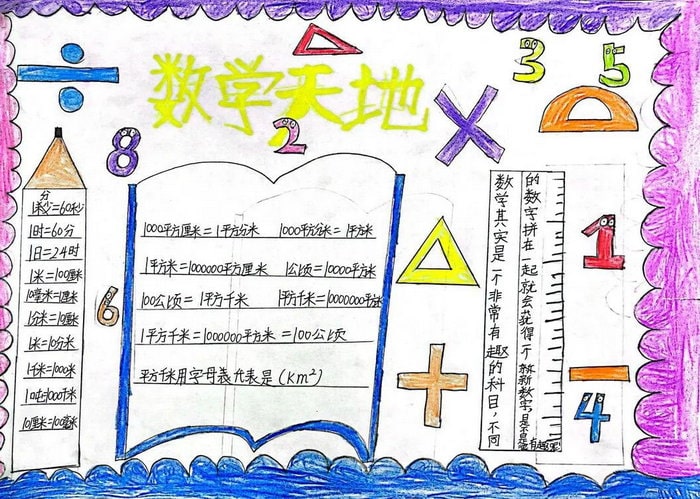 数学天地
3
5
8
2
分
1秒=60秒
1时=60分
1日=24时
1米=100厘米
10毫米=1厘米
1分米=10厘米
1米=10分米
1千米=1000米
6
1000平方厘米=1平方分米 1000平方分米=1平方米
1平方米=1000000平方厘米 1公顷=10000平方米
100公顷=1平方千米 1平方千米=1000000平方米
1平方千米=1000000平方米=100公顷
平方千米用字母表代表是(km²)
数学其实是一个非常有趣的科目,不同
的数字拼在一起就会获得一个新数字,是不是有趣
1
4